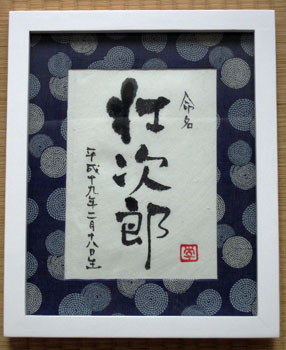 命名
壮次郎
平成十九年二月十八日生